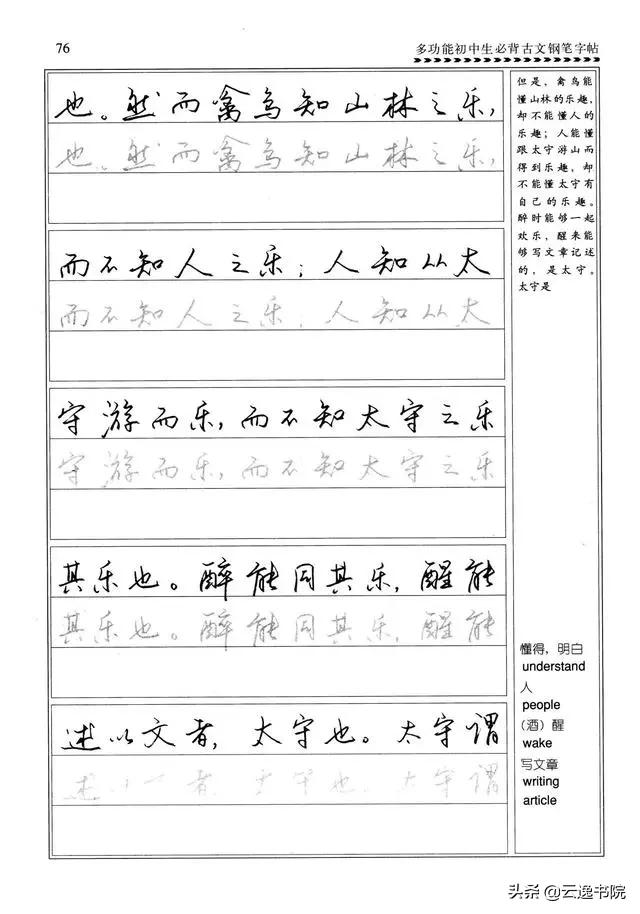 76
多功能初中生必背古文钢笔字帖
也。然而禽鸟知山林之乐，
也。然而禽鸟知山林之乐，
而不知人之乐；人知从太
而不知人之乐；人知从太
守游而乐，而不知太守之乐
守游而乐，而不知太守之乐
其乐也。醉能同其乐，醒能
其乐也。醉能同其乐，醒能
述以文者，太守也。太守谓
述以文者，太守也。太守谓
但是，禽鸟能
懂山林的乐趣，
却不能懂人的
乐趣；人能懂
跟太守游山而
得到乐趣，却
不能懂太守有
自己的乐趣。
醉时能够一起
欢乐，醒来能
够写文章记述
的，是太守。
太守是
懂得，明白
understand
人
people
（酒）醒
wake
写文章
writing
article
头条@云逸书院